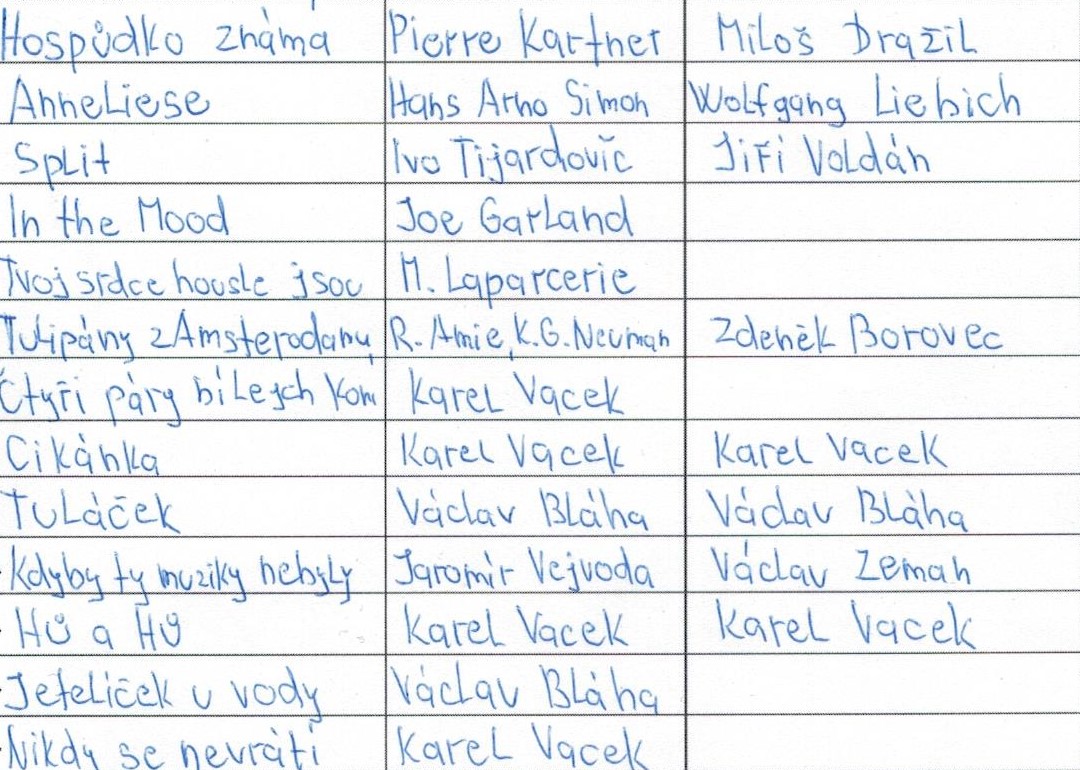 Hospůdko známa Pierre Kartner Miloš Dražil
Anneliese Hans Arno Simon Wolfgang Liebich
Split Ivo Tijardovič Jiří Voldán
In the Mood Joe Garland
Tvoj srdce housle jsou M. Laparcerie
Tulipány z Amsterodamu R. Amie, K.G. Neuman Zdeněk Borovec
Čtyři páry bílejch koní Karel Vacek
Cikánka Karel Vacek Karel Vacek
Tuláček Václav Bláha Václav Bláha
Kdyby ty muziky nebyly Jaromír Vejvoda Václav Zeman
Hů a Hů Karel Vacek Karel Vacek
Jetelíček u vody Václav Bláha
Nikdy se nevrátí Karel Vacek